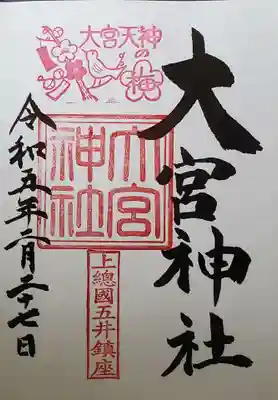 大宮神社
大宮天神の梅
大宮
神社
上總國五井鎮座
令和五年二月二十七日